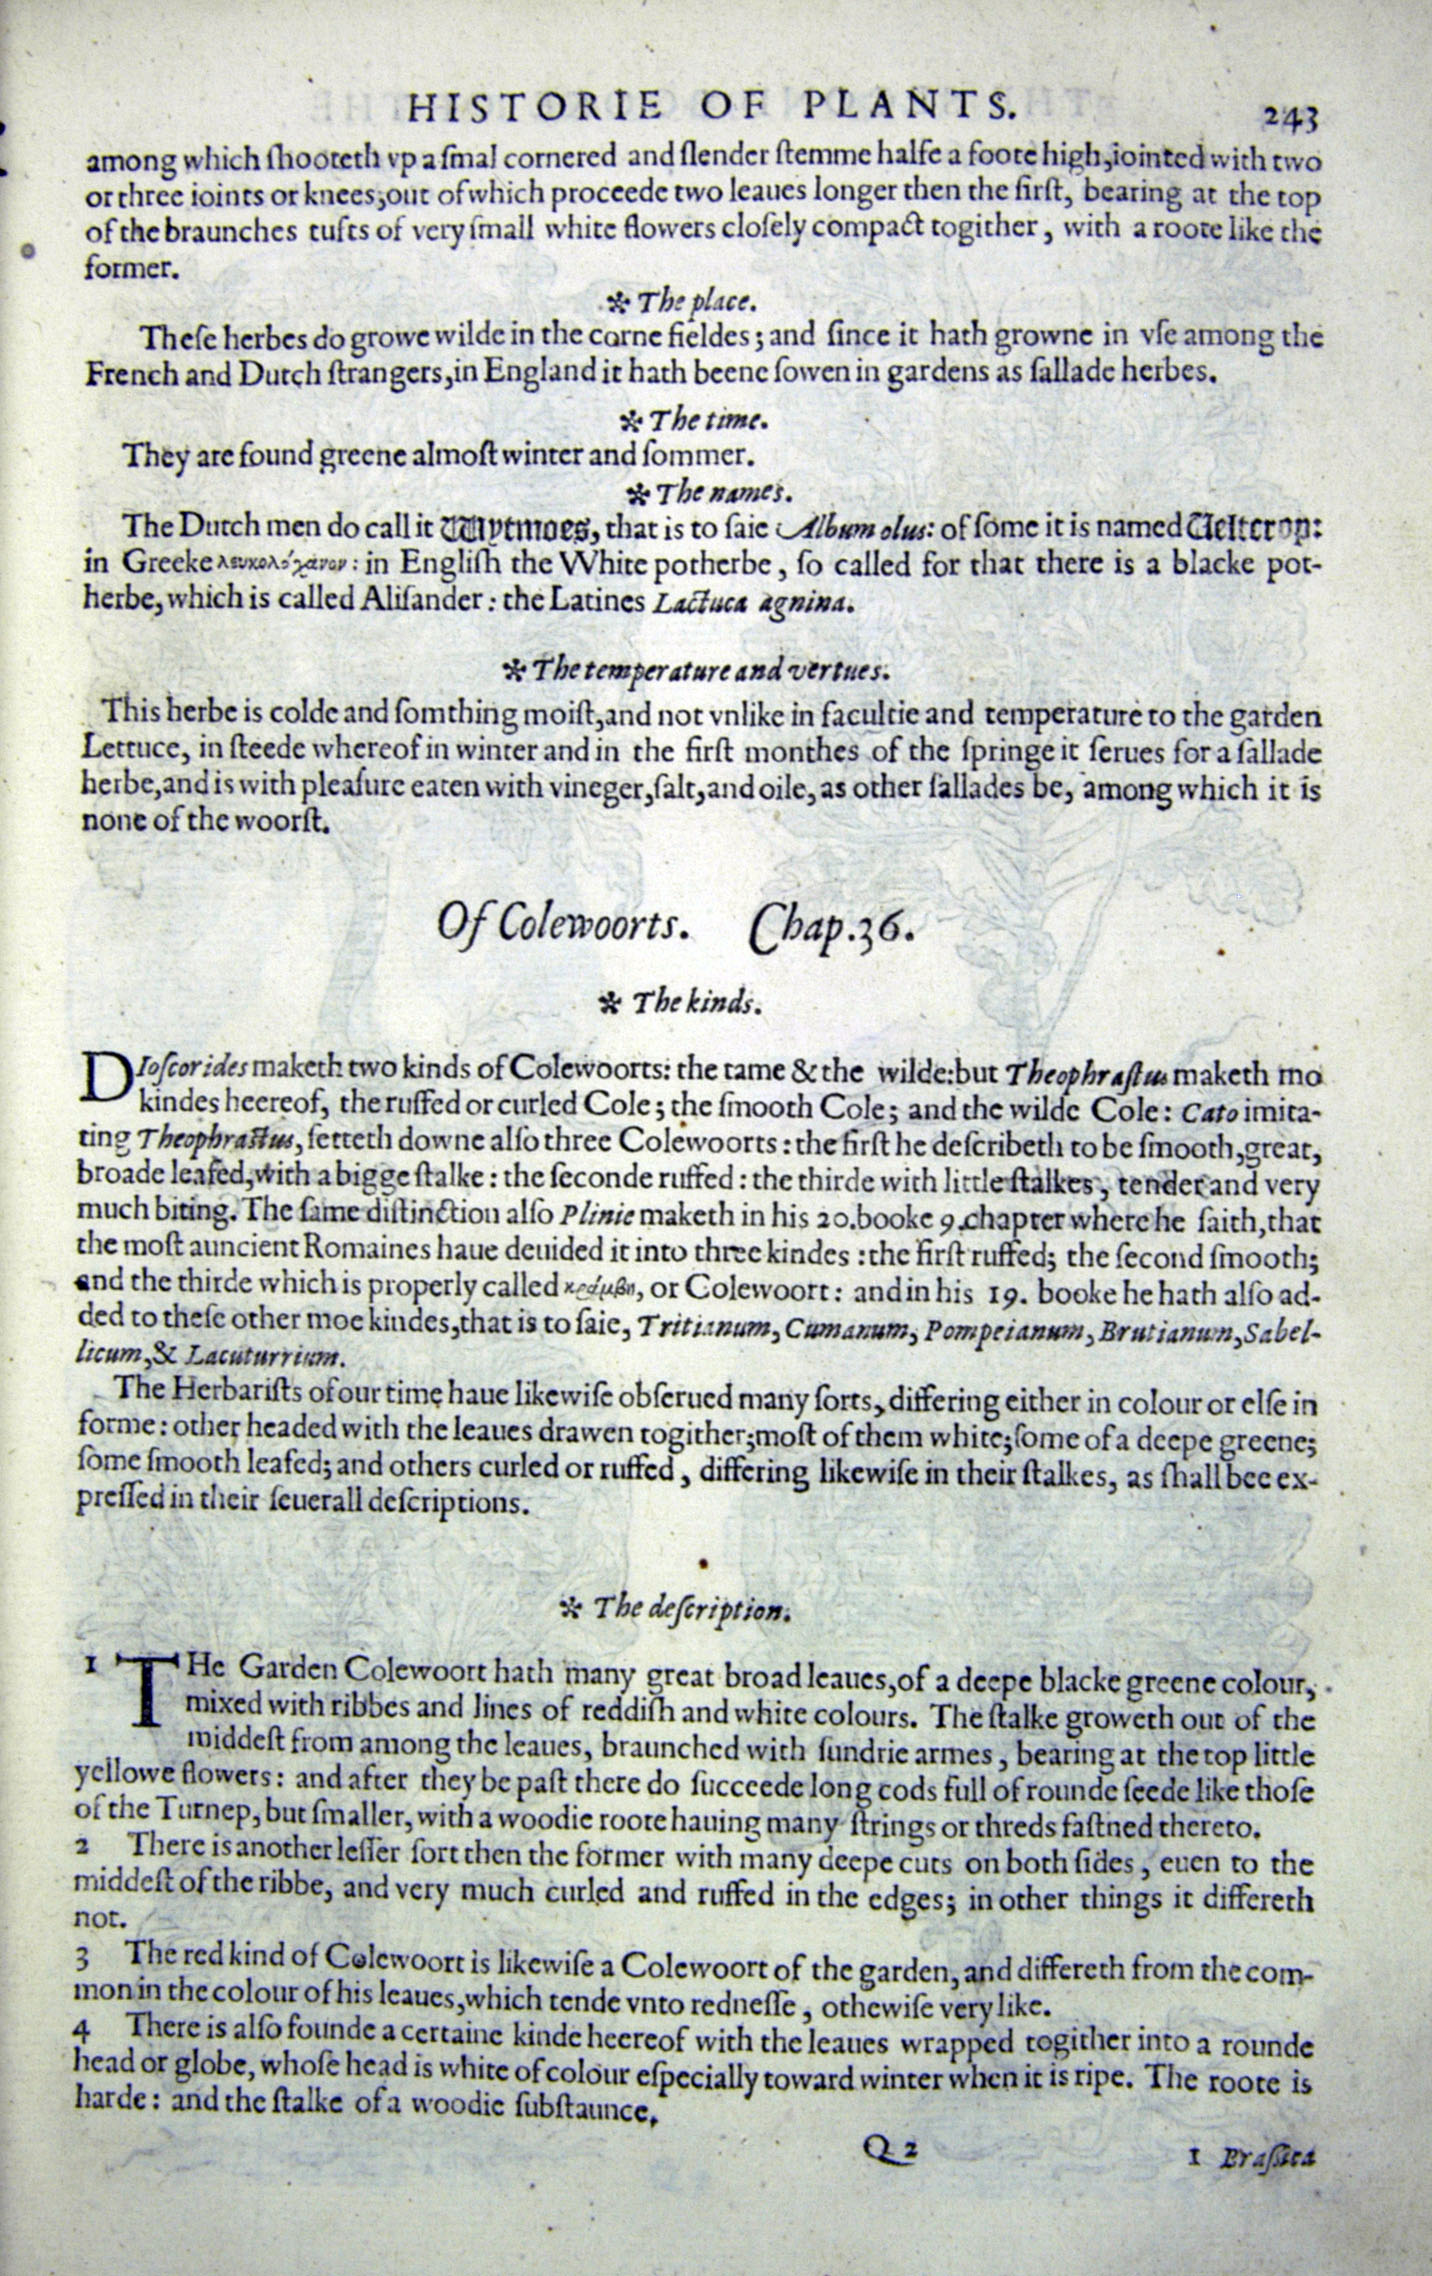 HISTORIE OF PLANTS. 243
among which ſhooteth vp a ſmal cornered and ſlender ſtemme halfe a foote high, iointed with two
or three ioints or knees, out of which proceede two leaues longer then the firſt, bearing at the top
of the braunches tufts of very ſmall white flowers cloſely compact togither, with a roote like the
former.
✻ The place.
Theſe herbes do growe wilde in the corne fieldes; and ſince it hath growne in vſe among the
French and Dutch ſtrangers, in England it hath beene ſowen in gardens as ſallade herbes.
✻ The time.
They are found greene almoſt winter and ſommer.
✻ The names.
The Dutch men do call it Wytmoes, that is to ſaie Album olus: of ſome it is named Ueltcrop:
in Greeke λευκολάχανον: in Engliſh the White potherbe, ſo called for that there is a blacke pot-
herbe, which is called Aliſander: the Latines Lactuca agnina.
✻ The temperature and vertues.
This herbe is colde and ſomthing moiſt, and not vnlike in facultie and temperature to the garden
Lettuce, in ſteede whereof in winter and in the firſt monthes of the ſpringe it ſerues for a ſallade
herbe, and is with pleaſure eaten with vineger, ſalt, and oile, as other ſallades be, among which it is
none of the woorſt.
Of Colewoorts. Chap. 36.
✻ The kinds.
DIoſcorides maketh two kinds of Colewoorts: the tame & the wilde: but Theophraſtus maketh mo
kindes heereof, the ruffed or curled Cole; the ſmooth Cole; and the wilde Cole: Cato imita-
ting Theophraſtus, ſetteth downe alſo three Colewoorts: the firſt he deſcribeth to be ſmooth, great,
broade leafed, with a bigge ſtalke: the ſeconde ruffed: the thirde with little ſtalkes, tender and very
much biting. The ſame diſtinction alſo Plinie maketh in his 20. booke 9. chapter where he ſaith, that
the moſt auncient Romaines haue deuided it into three kindes: the firſt ruffed; the ſecond ſmooth;
and the thirde which is properly called κράμβη, or Colewoort: and in his 19. booke he hath alſo ad-
ded to theſe other moe kindes, that is to ſaie, Tritianum, Cumanum, Pompeianum, Brutianum, Sabel-
licum, & Lacuturrium.
The Herbariſts of our time haue likewiſe obſerued many ſorts, differing either in colour or elſe in
forme: other headed with the leaues drawen togither; moſt of them white; ſome of a deepe greene;
ſome ſmooth leafed; and others curled or ruffed, differing likewiſe in their ſtalkes, as ſhall bee ex-
preſſed in their ſeuerall deſcriptions.
✻ The deſcription.
1 THe Garden Colewoort hath many great broad leaues, of a deepe blacke greene colour,
mixed with ribbes and lines of reddiſh and white colours. The ſtalke groweth out of the
middeſt from among the leaues, braunched with ſundrie armes, bearing at the top little
yellowe flowers: and after they be paſt there do ſucceede long cods full of rounde ſeede like thoſe
of the Turnep, but ſmaller, with a woodie roote hauing many ſtrings or threds faſtned thereto.
2 There is another leſſer ſort then the former with many deepe cuts on both ſides, euen to the
middeſt of the ribbe, and very much curled and ruffed in the edges; in other things it differeth
not.
3 The red kind of Colewoort is likewiſe a Colewoort of the garden, and differeth from the com-
mon in the colour of his leaues, which tende vnto redneſſe, othewiſe very like.
4 There is alſo founde a certaine kinde heereof with the leaues wrapped togither into a rounde
head or globe, whoſe head is white of colour eſpecially toward winter when it is ripe. The roote is
harde: and the ſtalke of a woodie ſubſtaunce.
Q 2 1 Braſſica